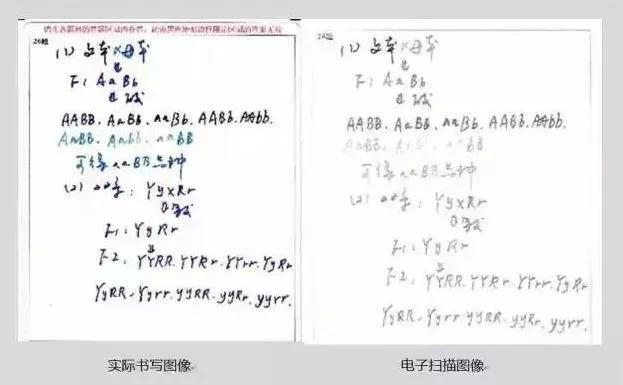 请在各题目的答题区域内作答，超出黑色矩形边框限定区域的答案无效
26题
(1) 父本×母本
F1 AaBb
AABB. AaBB. aaBb. AABb. AAbb.
AaBB. Aabb. aaBB
可得aaBB品种
(2) : YyXRr
F1: YyRr
F2: YYRR. YYRr. YYrr. YyRr
YyRR. Yyrr. yyRR. yyRr. yyrr.
实际书写图像
26题
(1) 父本×母本
F1 AaBb
AABB. AaBB. aaBb. AABb. AAbb.
AaBB. aaBB
可得aaBB品种
(2) : YyXRr
F1: YyRr
F2: YYRR. YYRr. YYrr. YyRr
YyRR. Yyrr. yyRR. yyRr. yyrr.
电子扫描图像